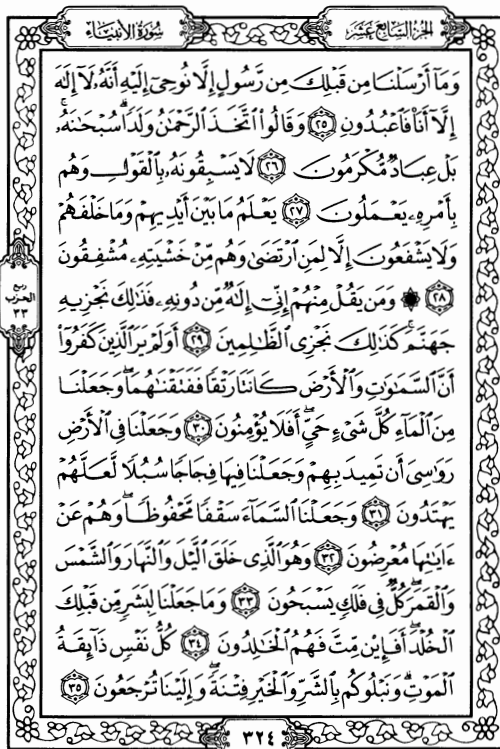 سُورَةُ الأَنبِيَاء
الجُزْءُ السَّابِعَ عَشَرَ
وَمَآ أَرۡسَلۡنَا مِن قَبۡلِكَ مِن رَّسُولٍ إِلَّا نُوحِىٓ إِلَيۡهِ أَنَّهُۥ لَآ إِلَٰهَ
إِلَّآ أَنَا۠ فَٱعۡبُدُونِ ٢٥ وَقَالُوا۟ ٱتَّخَذَ ٱلرَّحۡمَٰنُ وَلَدًاۗ سُبۡحَٰنَهُۥۚ
بَلۡ عِبَادٌ مُّكۡرَمُونَ ٢٦ لَا يَسۡبِقُونَهُۥ بِٱلۡقَوۡلِ وَهُم
بِأَمۡرِهِۦ يَعۡمَلُونَ ٢٧ يَعۡلَمُ مَا بَيۡنَ أَيۡدِيهِمۡ وَمَا خَلۡفَهُمۡ
وَلَا يَشۡفَعُونَ إِلَّا لِمَنِ ٱرۡتَضَىٰ وَهُم مِّنۡ خَشۡيَتِهِۦ مُشۡفِقُونَ
٢٨ ۞ وَمَن يَقُلۡ مِنۡهُمۡ إِنِّىٓ إِلَٰهٌ مِّن دُونِهِۦ فَذَٰلِكَ نَجۡزِيهِ
جَهَنَّمَۚ كَذَٰلِكَ نَجۡزِى ٱلظَّٰلِمِينَ ٢٩ أَوَلَمۡ يَرَ ٱلَّذِينَ كَفَرُوٓا۟
أَنَّ ٱلسَّمَٰوَٰتِ وَٱلۡأَرۡضَ كَانَتَا رَتۡقًا فَفَتَقۡنَٰهُمَاۖ وَجَعَلۡنَا
مِنَ ٱلۡمَآءِ كُلَّ شَىۡءٍ حَىٍّۖ أَفَلَا يُؤۡمِنُونَ ٣٠ وَجَعَلۡنَا فِى ٱلۡأَرۡضِ
رَوَٰسِىَ أَن تَمِيدَ بِهِمۡ وَجَعَلۡنَا فِيهَا فِجَاجًا سُبُلًا لَّعَلَّهُمۡ
يَهۡتَدُونَ ٣١ وَجَعَلۡنَا ٱلسَّمَآءَ سَقۡفًا مَّحۡفُوظًاۖ وَهُمۡ عَنۡ
ءَايَٰتِهَا مُعۡرِضُونَ ٣٢ وَهُوَ ٱلَّذِى خَلَقَ ٱلَّيۡلَ وَٱلنَّهَارَ وَٱلشَّمۡسَ
وَٱلۡقَمَرَۖ كُلٌّ فِى فَلَكٍ يَسۡبَحُونَ ٣٣ وَمَا جَعَلۡنَا لِبَشَرٍ مِّن قَبۡلِكَ
ٱلۡخُلۡدَۖ أَفَإِي۟ن مِّتَّ فَهُمُ ٱلۡخَٰلِدُونَ ٣٤ كُلُّ نَفۡسٍ ذَآئِقَةُ
ٱلۡمَوۡتِۗ وَنَبۡلُوكُم بِٱلشَّرِّ وَٱلۡخَيۡرِ فِتۡنَةًۖ وَإِلَيۡنَا تُرۡجَعُونَ ٣٥
ربع
الحزب
٣٣
٣٢٤